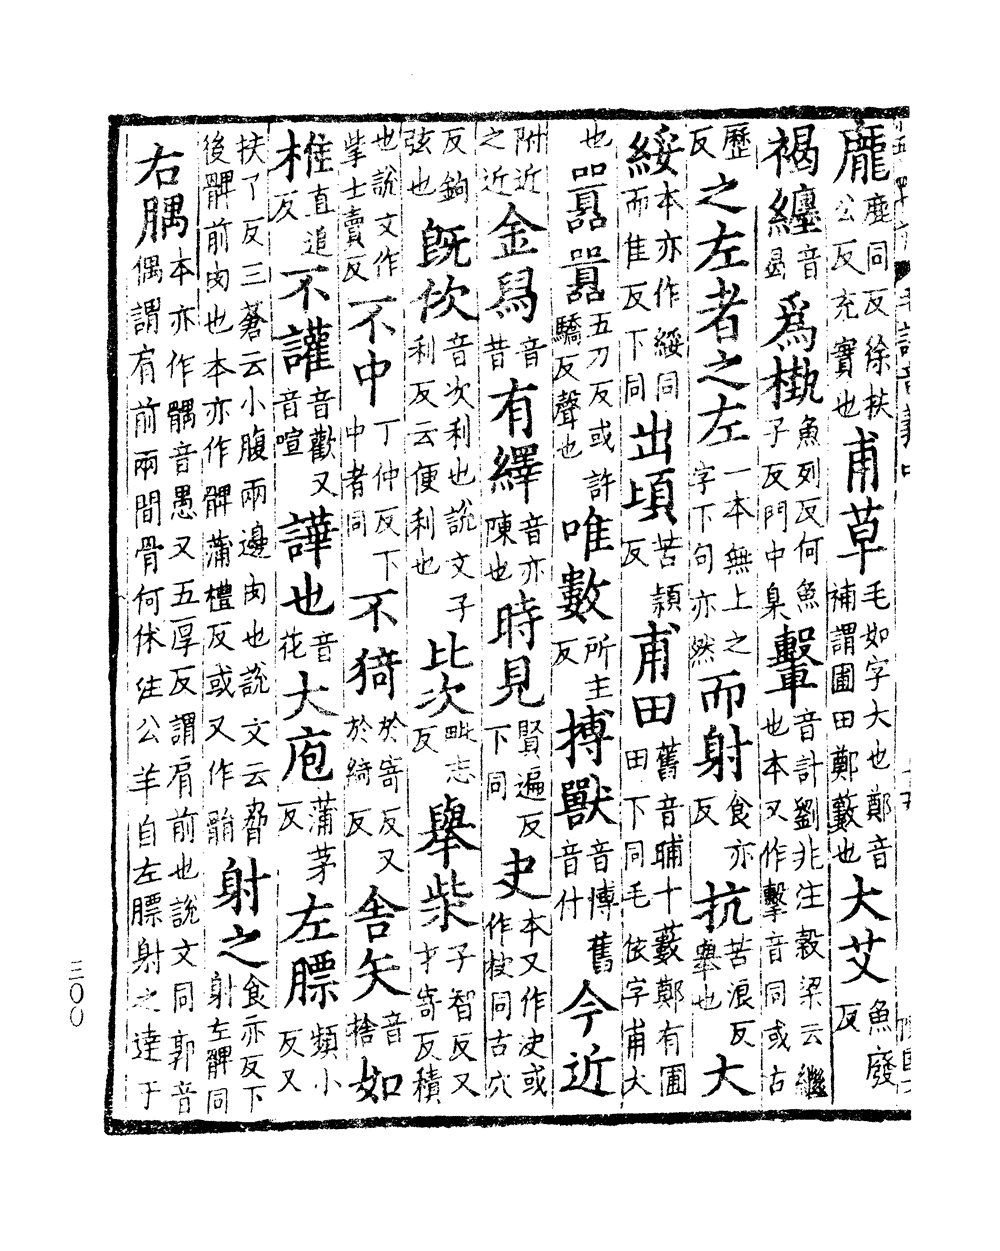 龐鹿同反徐扶公反充實也甫草毛如字大也鄭音補謂圃田鄭藪也大艾魚廢反
褐纏音曷爲槸魚列反何魚子反門中臬轚音計劉兆注穀梁云繼也本又作擊音同或古
歷反之左者之左一本無上之字下句亦然而射食亦反抗苦浪反舉也大
綏本亦作緌同而隹反下同出頃苦潁反甫田舊音晡十藪鄭有圃田下同毛依字甫大
也嚻嚻五刀反或許驕反聲也唯數所主反搏獸音博舊音什今近
附近之近金舄音昔有繹音亦陳也時見賢遍反下同史本又作決或作抉同古穴
反鉤弦也既佽音次利也說文子利反云便利也比次毗志反舉柴子智反又才寄反積
也說文作掌士賣反不中丁仲反下中者同不猗於寄反又於綺反舍矢音捨如
椎直追反不讙音歡又音喧譁也音花大庖蒲茅反左膘頻小反又
扶了反三蒼云小腹兩邊肉也說文云脅後髀前肉也本亦作髀蒲禮反或又作䯚射之食亦反下射左髀同
右腢本亦作髃音愚又五厚反謂肩前也說文同郭音偶謂肩前兩間骨何休注公羊自左膘射之達于
三〇〇